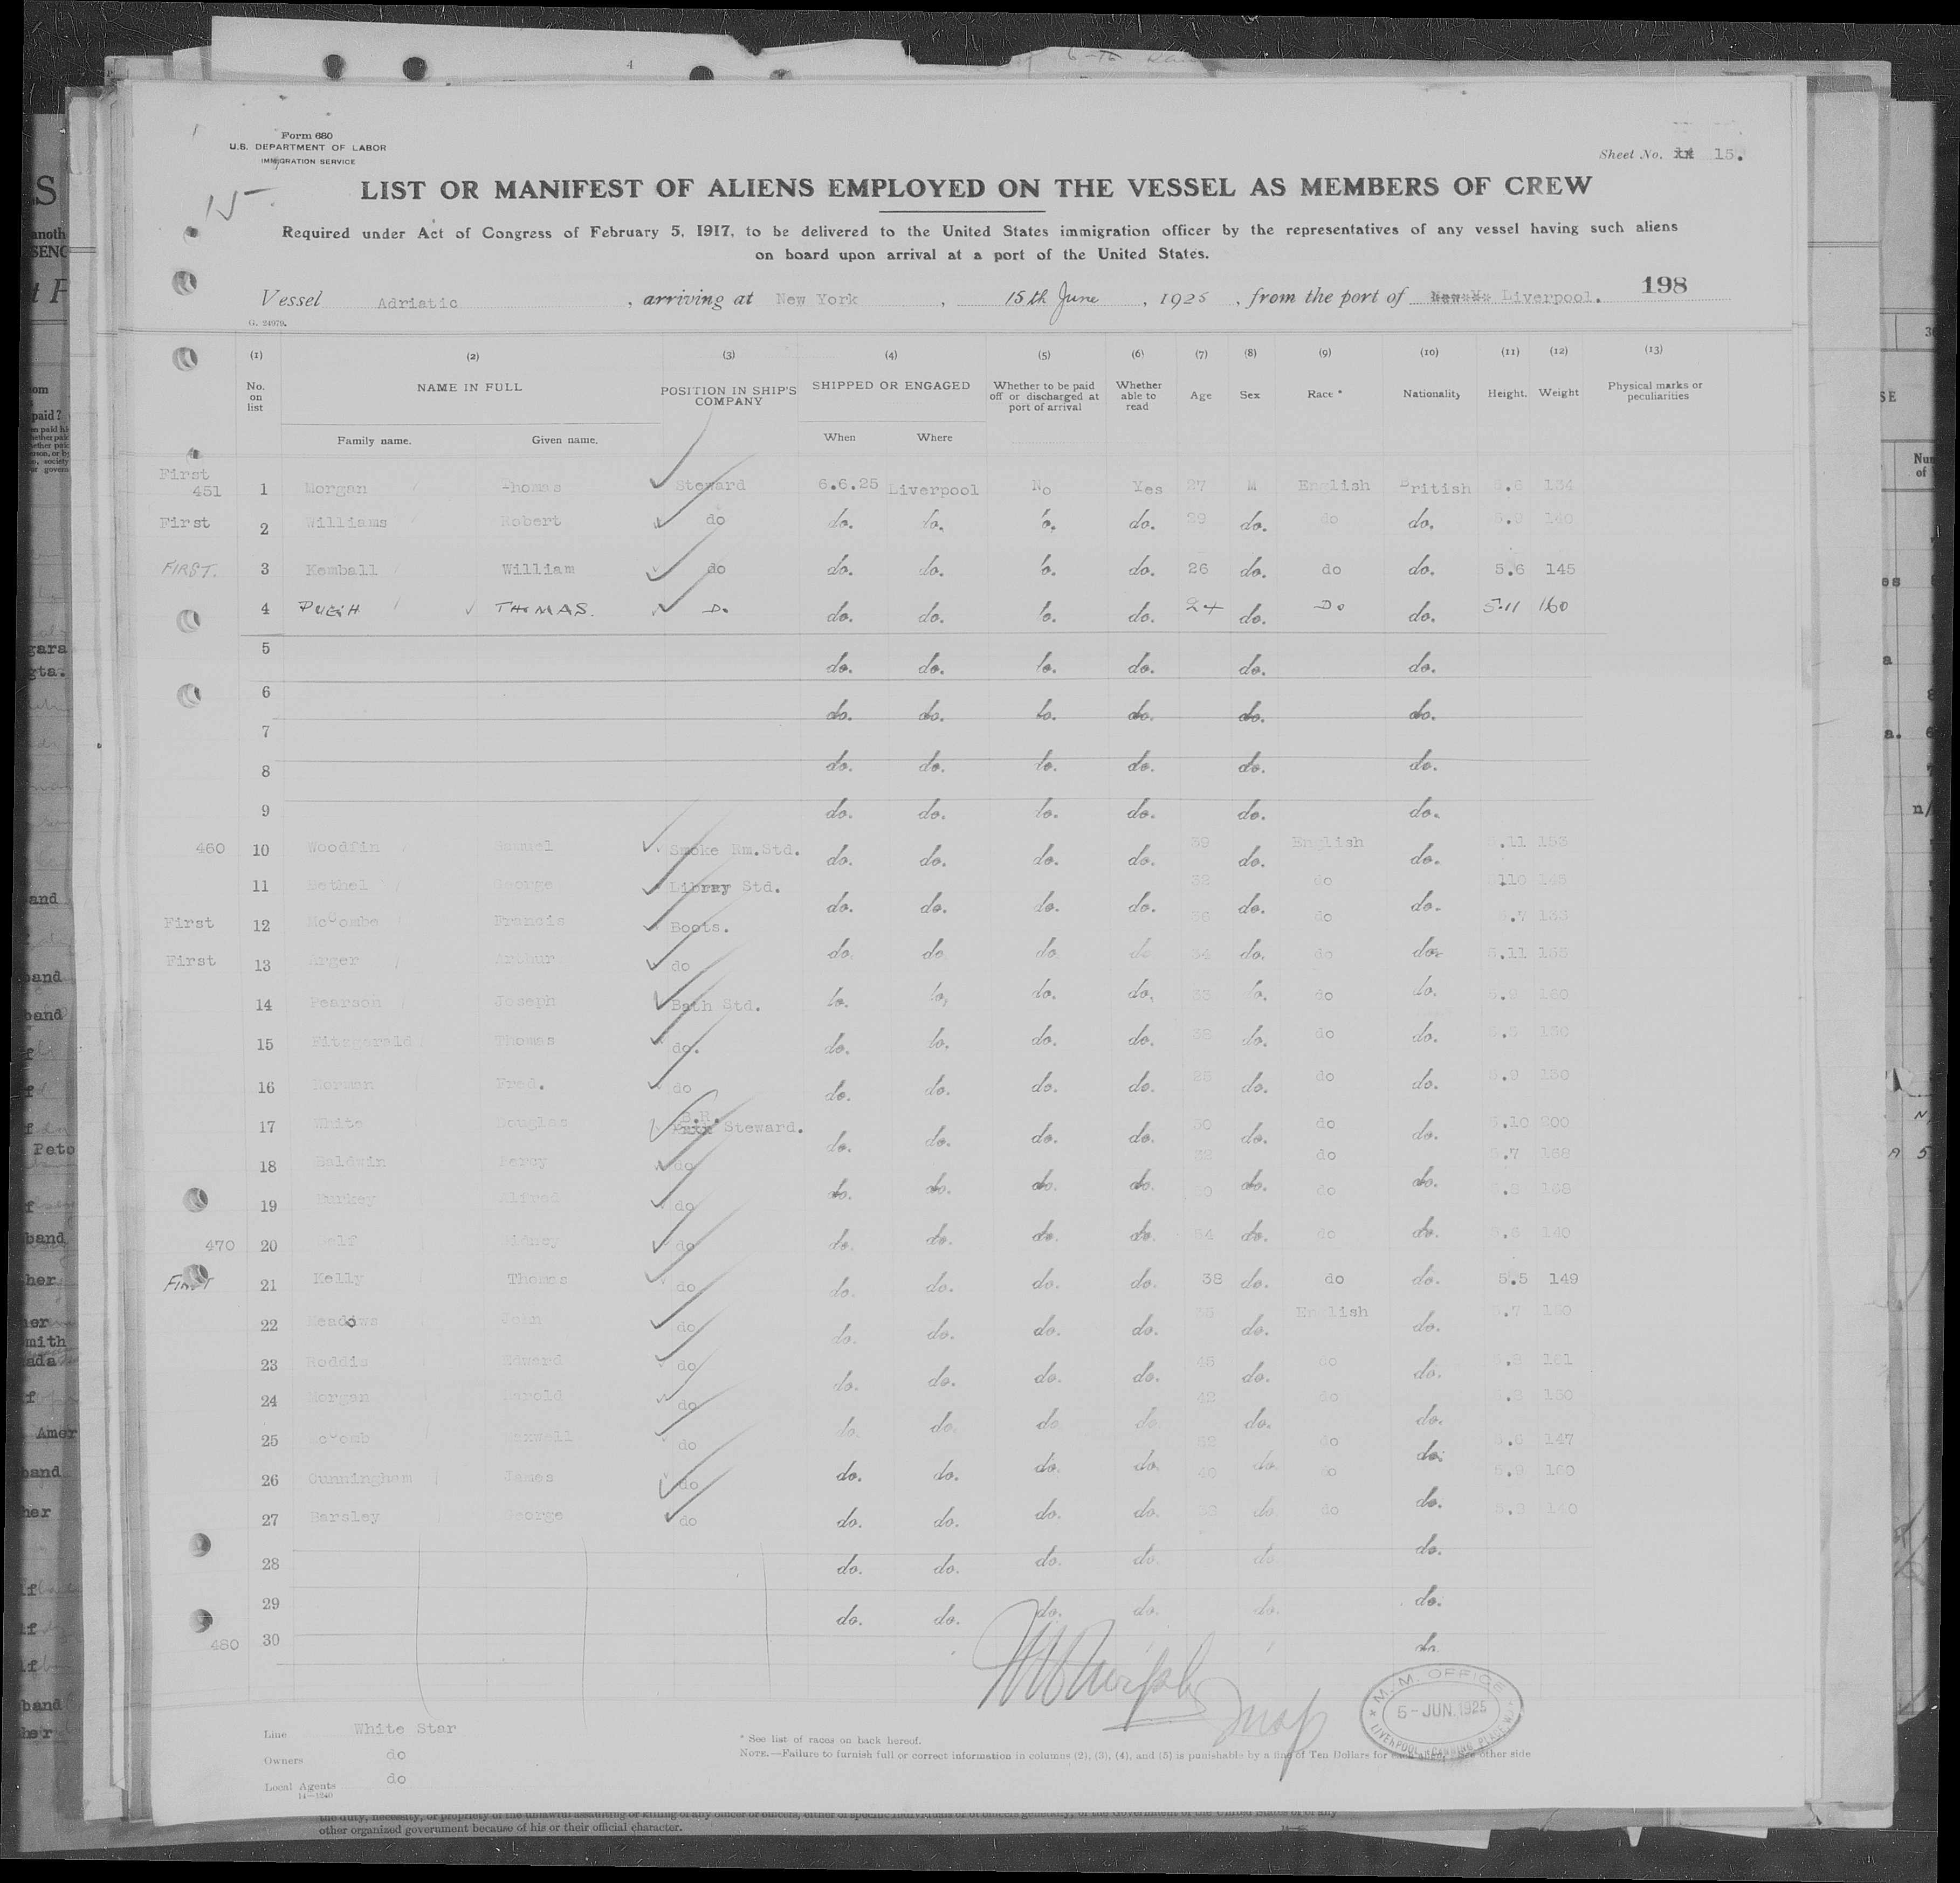 Form 680
U.S. DEPARTMENT OF LABOR
IMMIGRATION SERVICE
Sheet No. 15.
15
LIST OR MANIFEST OF ALIENS EMPLOYED ON THE VESSEL AS MEMBERS OF CREW
Required under Act of Congress of February 5, 1917, to be delivered to the United States immigration officer by the representatives of any vessel having such aliens
on board upon arrival at a port of the United States.
198
Vessel Adriatic , arriving at New York , 15th June , 1925 , from the port of Liverpool.
G. 24979.
(1) (2) (3) (4) (5) (6) (7) (8) (9) (10) (11) (12) (13)
No. on list NAME IN FULL POSITION IN SHIP'S COMPANY SHIPPED OR ENGAGED Whether to be paid off or discharged at port of arrival Whether able to read Age Sex Race * Nationality Height. Weight Physical marks or peculiarities
Family name. Given name. When Where
First 451 1 Morgan Thomas Steward 6.6.25 Liverpool No Yes 27 M English British 5.6 134
First 2 Williams Robert do do. do. do. do. 29 do. do do. 5.9 140
FIRST. 3 Kemball William do do. do. do. do. 26 do. do do. 5.6 145
4 PUGH THOMAS. Do do. do. do. do. 24 do. Do do. 5.11 160
5 do. do. do. do. do. do.
6 do. do. do. do. do. do.
7 do. do. do. do. do. do.
8 do. do. do. do. do. do.
9 do. do. do. do. do. do.
460 10 Woodfin Samuel Smoke Rm.Std. do. do. do. do. 39 do. English do. 5.11 153
11 Bethel George Library Std. do. do. do. do. 32 do. do do. 145
First 12 McCombe Francis Boots. do. do. do. do. do. do do. 5.7
First 13 Arger Arthur do do. do do do 34 do. do do. 5.11 155
14 Pearson Joseph Bath Std. do. do. do. do. 33 do. do do. 5.9 160
15 Fitzgerald Thomas do. do. do. do. do. 38 do. do do. 150
16 Norman Fred. do do. do. do. do. do. do do. 5.9 150
17 White Douglas B.R. Steward. do. do. do. do. 30 do. do do. 5.10 200
18 Baldwin Percy do do. do. do. do. do. do do. 5.7 168
19 Alfred do do. do. do. do. do. do do. 168
470 20 Sidney do do. do. do. do. do. do do. 140
First 21 Kelly Thomas do do. do. do. do. 38 do. do do. 5.5 149
22 Meadows John do do. do. do. do. do. English do. 5.7 160
23 Roddis Edward do do. do. do. do. 45 do. do do. 161
24 Morgan Harold do do. do. do do. 42 do. do do. 150
25 McComb Maxwell do do. do. do. do. 52 do. do do. 147
26 Cunningham James do do. do. do. do. 40 do do do. 5.9 160
27 Barsley George do do. do. do. do. do. do do. 5.9 140
28 do. do. do. do. do do.
29 do. do. do. do. do. do.
480 30
Line White Star
Owners do
Local Agents do
14—1240
* See list of races on back hereof.
NOTE.—Failure to furnish full or correct information in columns (2), (3), (4), and (5) is punishable by a fine of Ten Dollars for each alien. See other side
M. M. OFFICE
5-JUN.1925
LIVERPOOL CANNING PLACE
other organized government because of his or their official character.